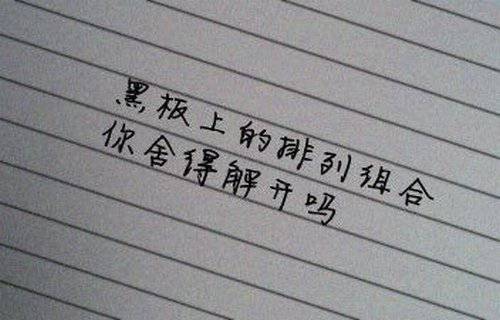 黑板上的排列组合
你舍得解开吗